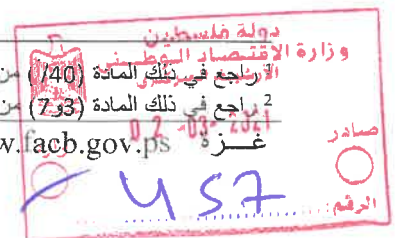 دولة فلسطين
وزارة الاقتصاد الوطني
1 راجع في ذلك المادة (40/) من
2 راجع في ذلك المادة (3و7) من
02 -03- 2021
w.facb.gov.ps غزة
صادر
الرقم: 457